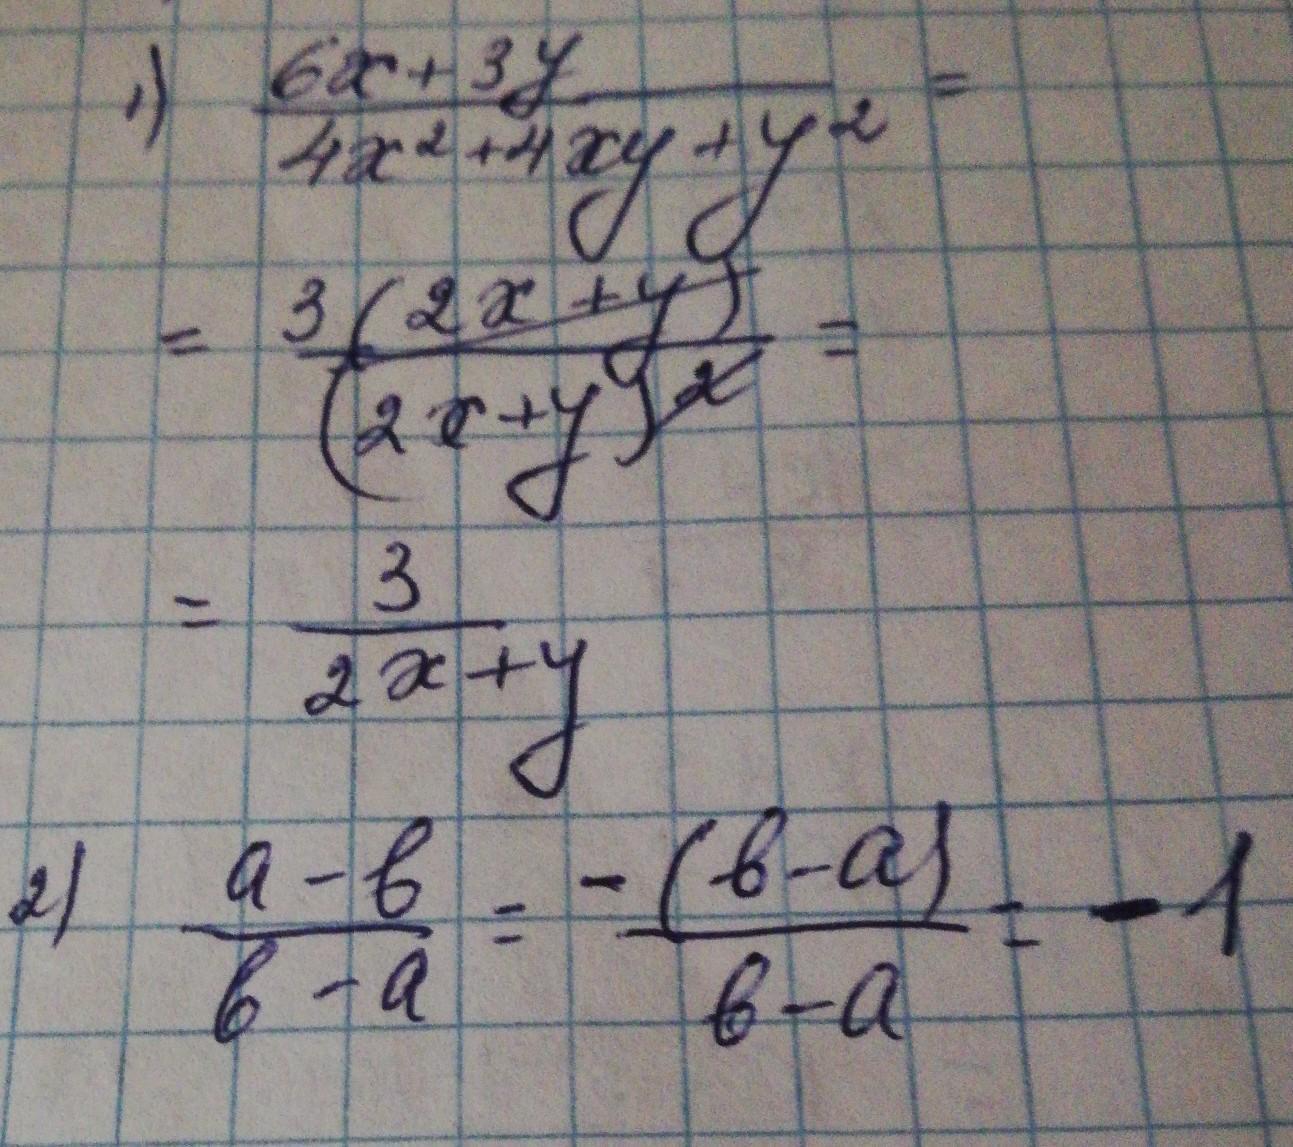 1) (6x+3y)/(4x²+4xy+y²) =
= 3(2x+y)/(2x+y)² =
= 3/(2x+y)
2) (a-b)/(b-a) = -(b-a)/(b-a) = -1